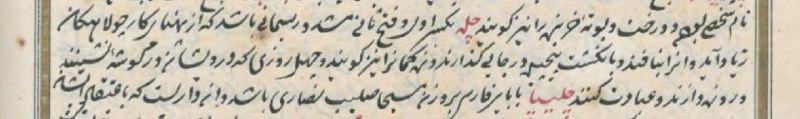 نام شخصی بود و درخت و بوته خربزه را نیز گویند چله بکسر اول و فتح ثانی مشدد ریسمانی باشد که از پهنای کار جولاهکان
زیاد آید و آنرا نبافند و بانگشت پیچیده در جایی گذارند و زه کمانرا نیز گویند و چهل روزی که درویشان در گوشه نشینند
و روزه دارند و عبادت کنند چلیپا با بای فارسی بروزن مسیحا صلیب نصاری باشد و آن داریست که باعتقاد ایشان